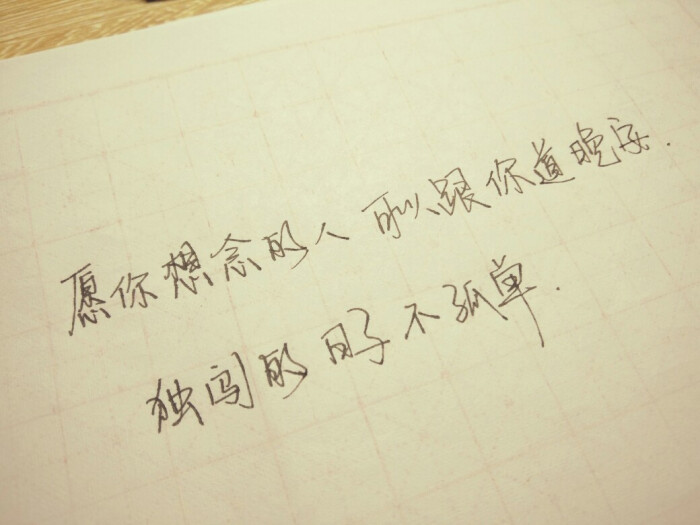 愿你想念的人可以跟你道晚安.
独闯的日子不孤单.